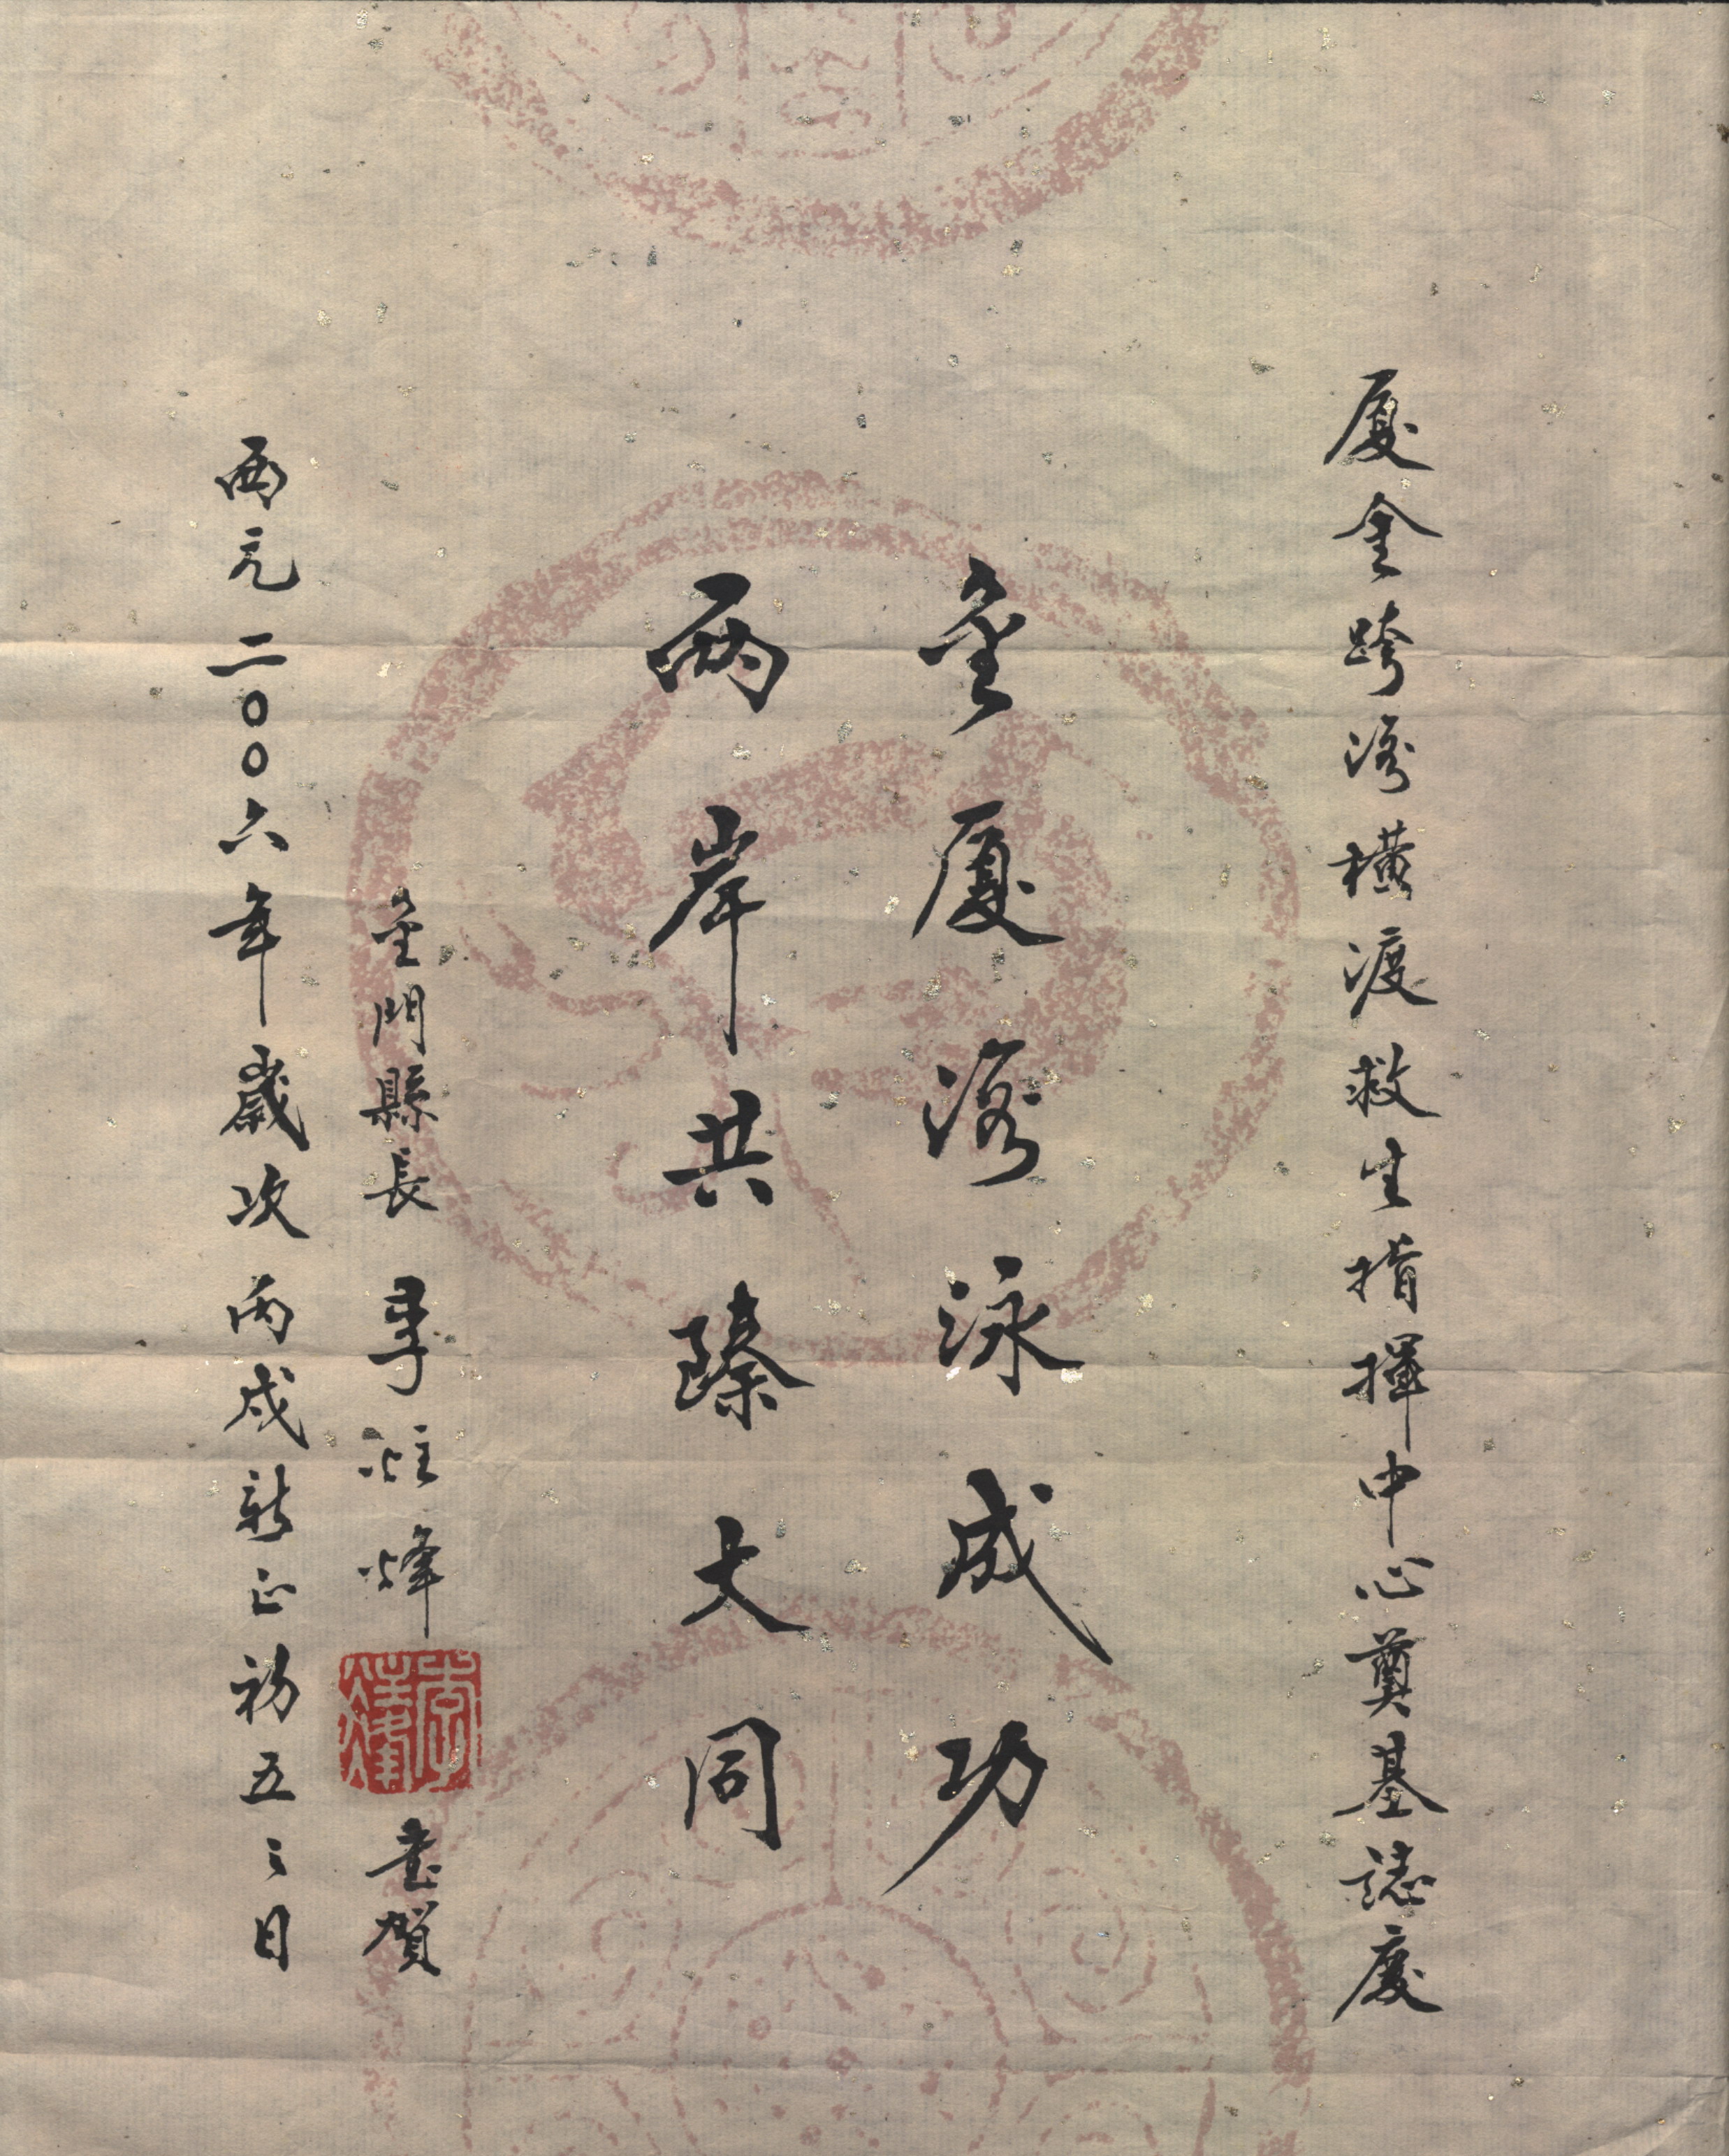 廈金跨灣橫渡救生指揮中心奠基誌慶
金廈灣泳成功
兩岸共臻大同
金門縣長 李炷烽 書賀
西元二〇〇六年歲次丙戌新正初五之日